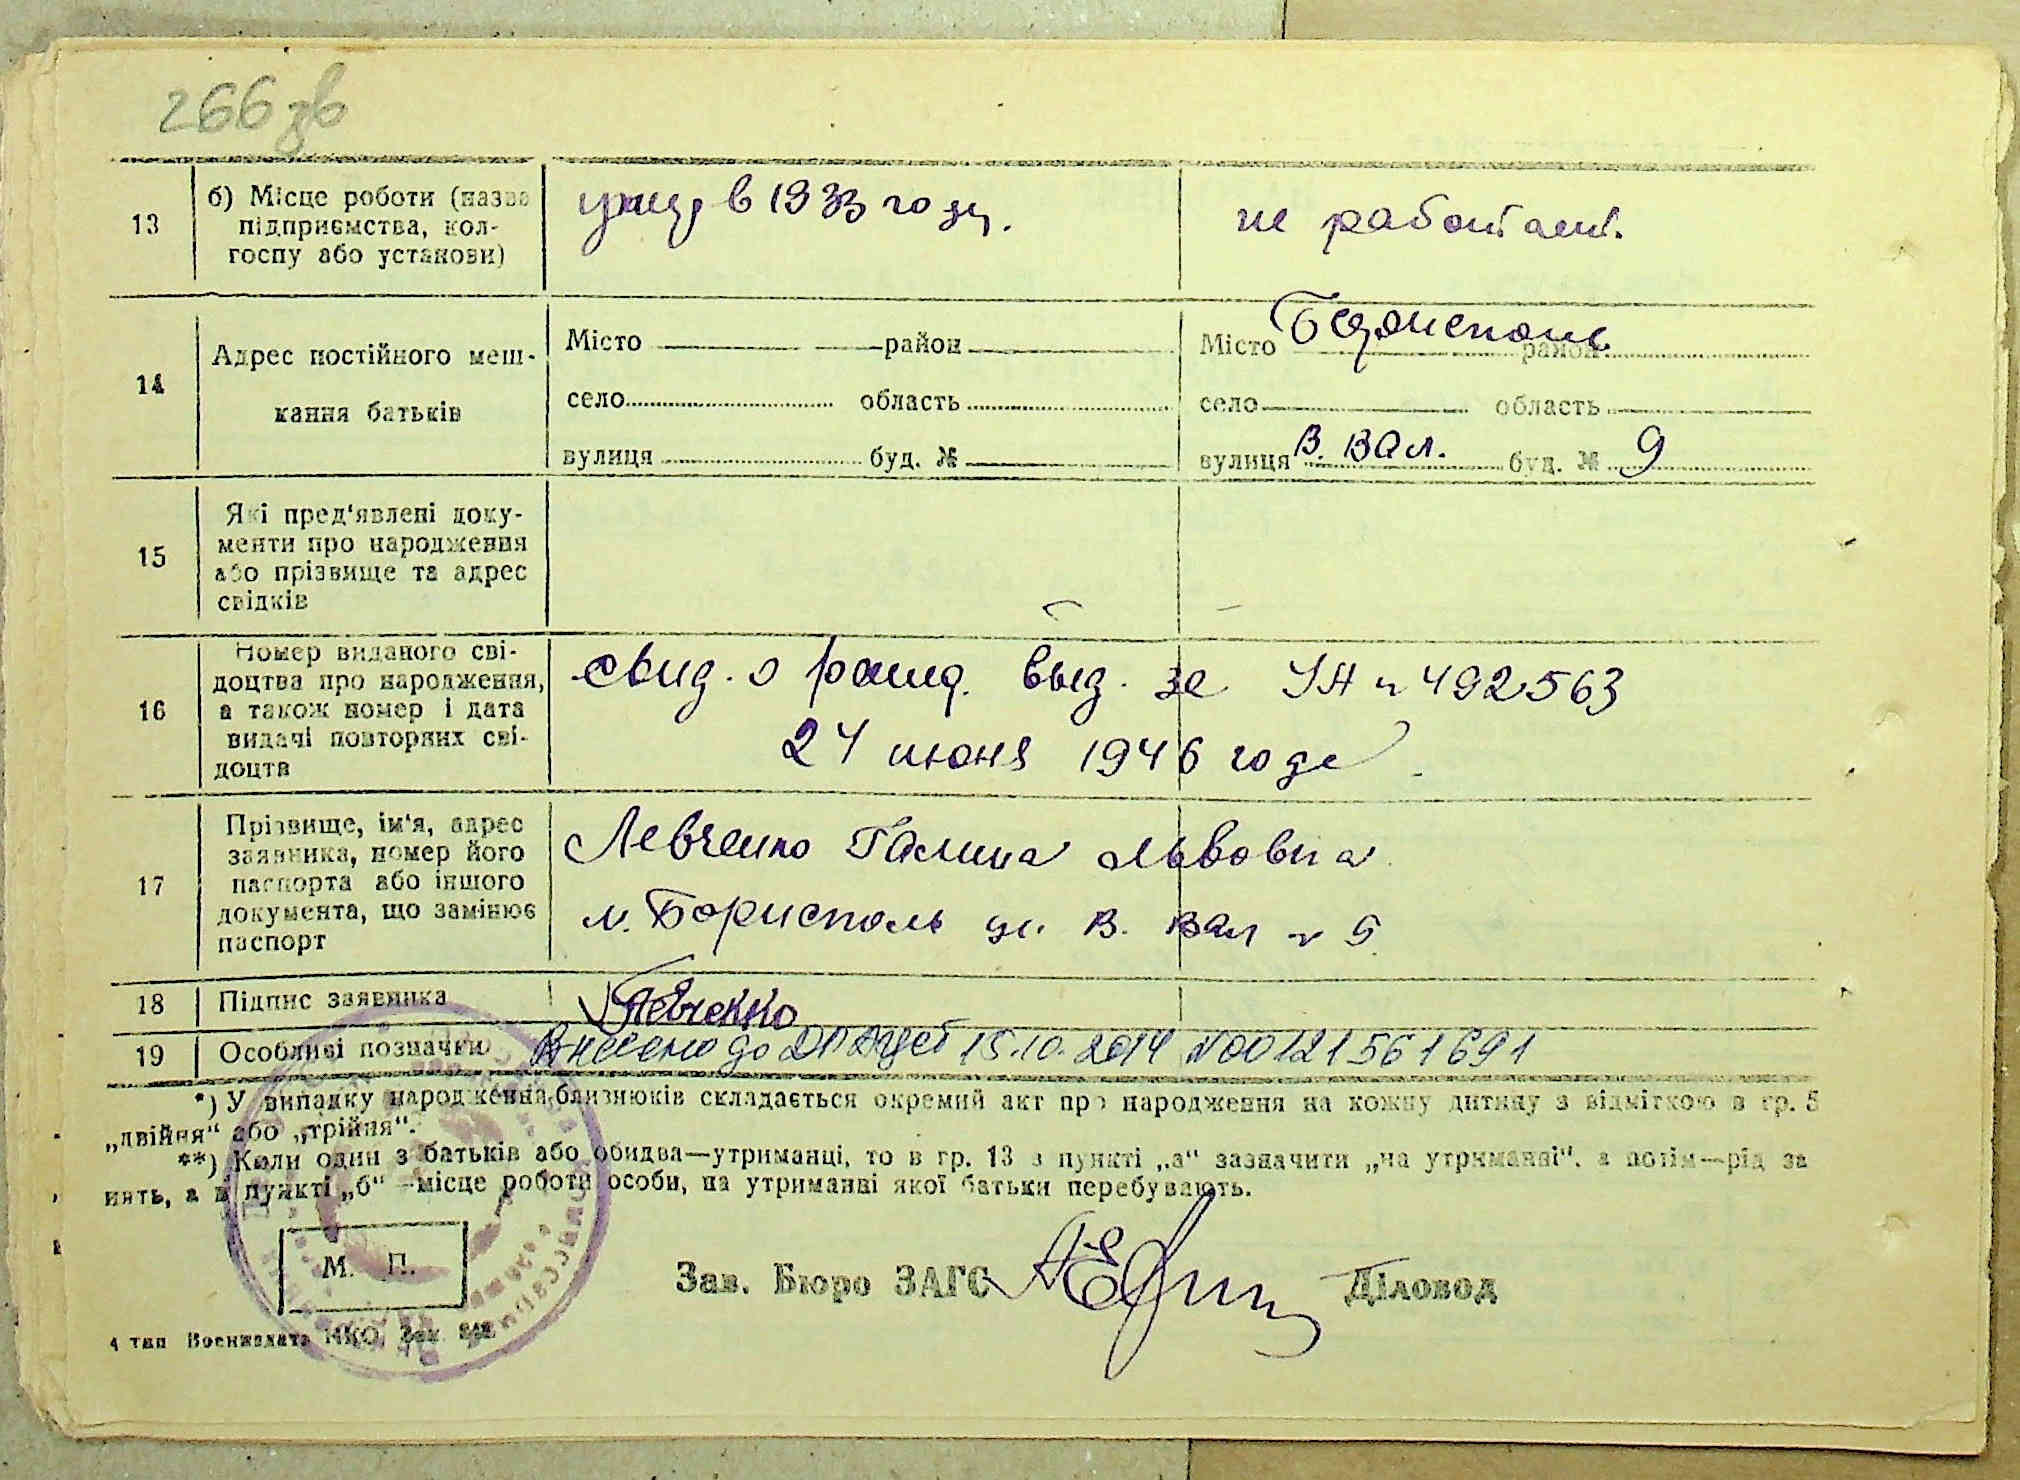 266 зв
13
б) Місце роботи (назва
підприємства, кол-
госпу або установи)
умер в 1933 году.
не работает.
14
Адрес постійного меш-
кання батьків
Місто район
село область
вулиця буд. №
Місто Борисполь район
село область
вулиця В. Вал. буд. № 9
15
Які пред'явлені доку-
менти про народження
або прізвище та адрес
свідків
16
Номер виданого сві-
доцтва про народження,
а також номер і дата
видачі повторних сві-
доцтв
свид. о рожд. выд. за УА № 492563
24 июня 1946 года
17
Прізвище, ім'я, адрес
заявника, номер його
паспорта або іншого
документа, що замінює
паспорт
Левченко Галина Львовна
м. Борисполь ул. В. Вал № 9
18
Підпис заявника
Левченко
19
Особливі позначки
Внесено до ДРАЦСГ 15.10.2014 №00121561691
*) У випадку народження близнюків складається окремий акт про народження на кожну дитину з відміткою в гр. 5
„двійня“ або „трійня“.
**) Коли один з батьків або обидва—утриманці, то в гр. 13 в пункті „а“ зазначити „на утриманні“, а потім—рід за
нять, а в пункті „б“—місце роботи особи, на утриманні якої батьки перебувають.
М. П.
Зав. Бюро ЗАГС
Діловод
4 тип Воениздата НКО, Зак.